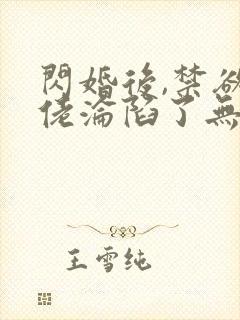 閃婚後,禁欲
佬淪陷了無
王雪纯